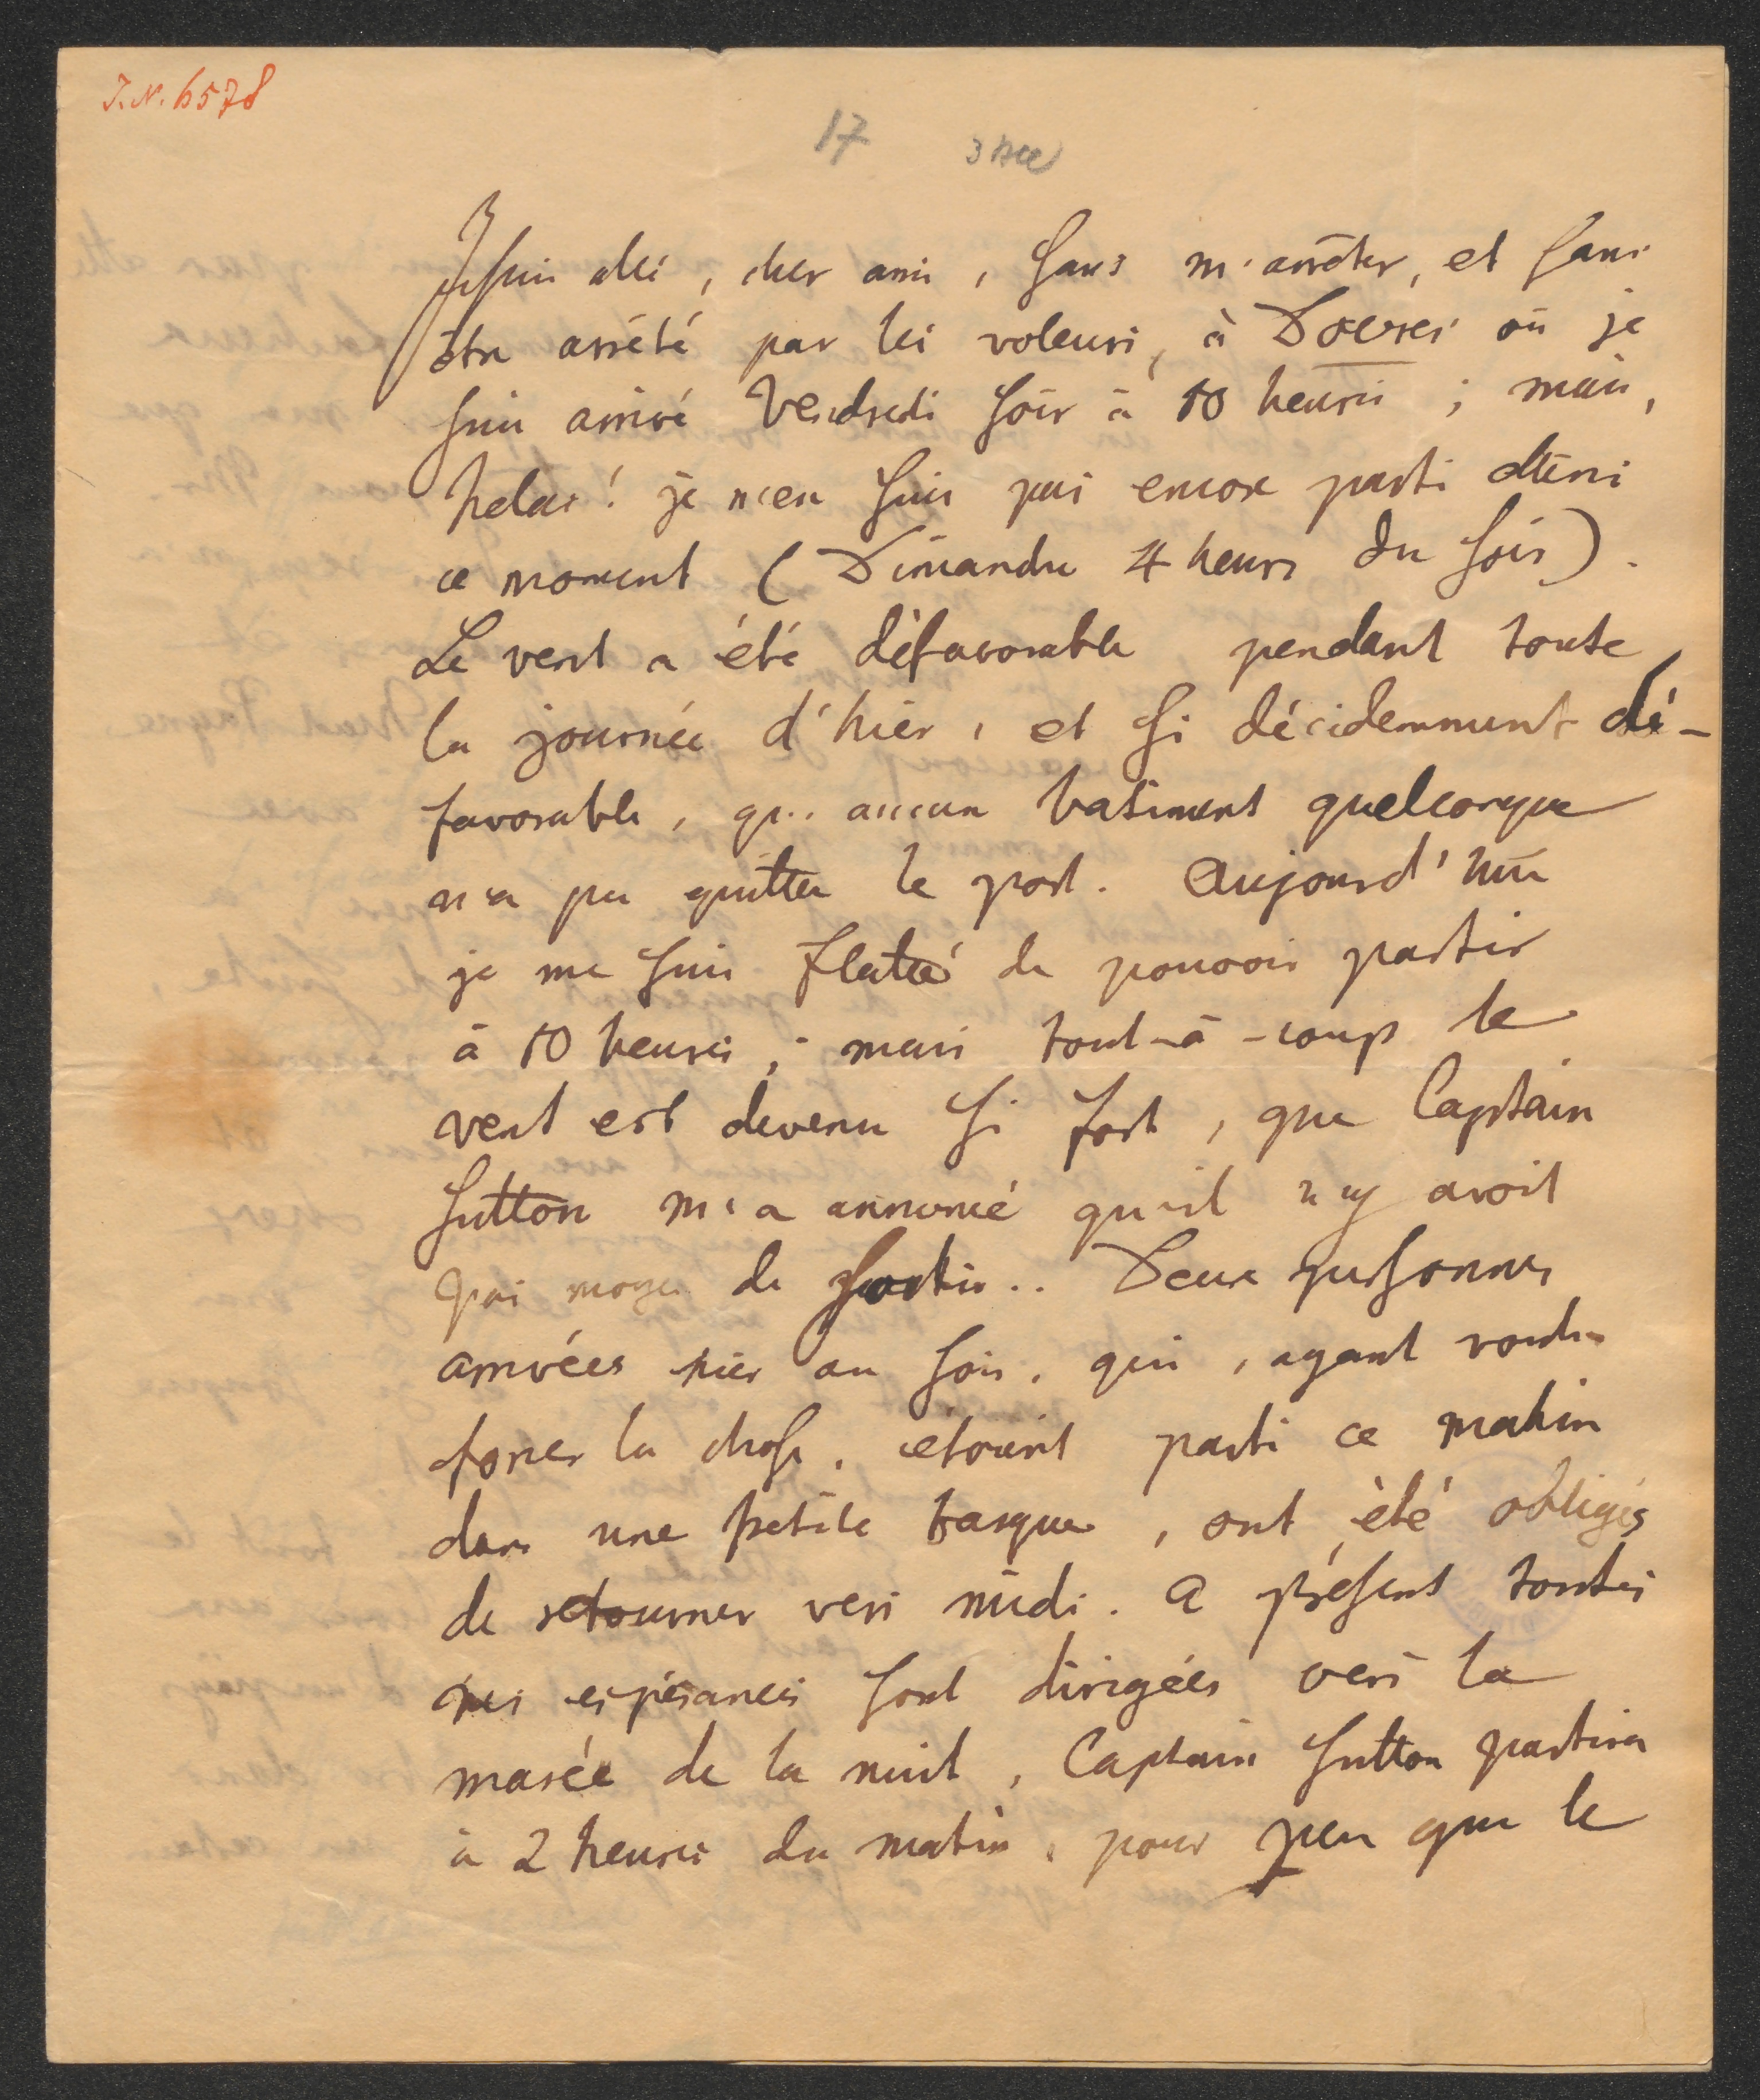 I.N. 6578
17
Je suis allé, cher ami, sans m'arrêter, et sans
être arrêté par les voleurs, à Douvres où je
suis arrivé Vendredi soir à 10 heures ; mais,
helas ! je n'en suis pas encore parti dans
ce moment (Dimanche 4 heures du soir).
Le vent a été défavorable pendant toute
la journée d'hier, et si décidemment dé-
favorable, qu'aucun batiment quelconque
n'a pu quitter le port. Aujourd'hui
je me suis flatté de pouvoir partir
à 10 heures ; mais tout-à-coup le
vent est devenu si fort, que Captain
Sutton m'a annoncé qu'il n'y avoit
pas moyen de sortir.. Deux personnes
arrivées hier au soir, qui, ayant voulu
forcer la chose, étoient parti ce matin
dans une petite barque, ont été obligés
de retourner vers midi. A présent toutes
mes espérances sont dirigées vers la
marée de la nuit, Captain Sutton partira
à 2 heures du matin, pour peu que le